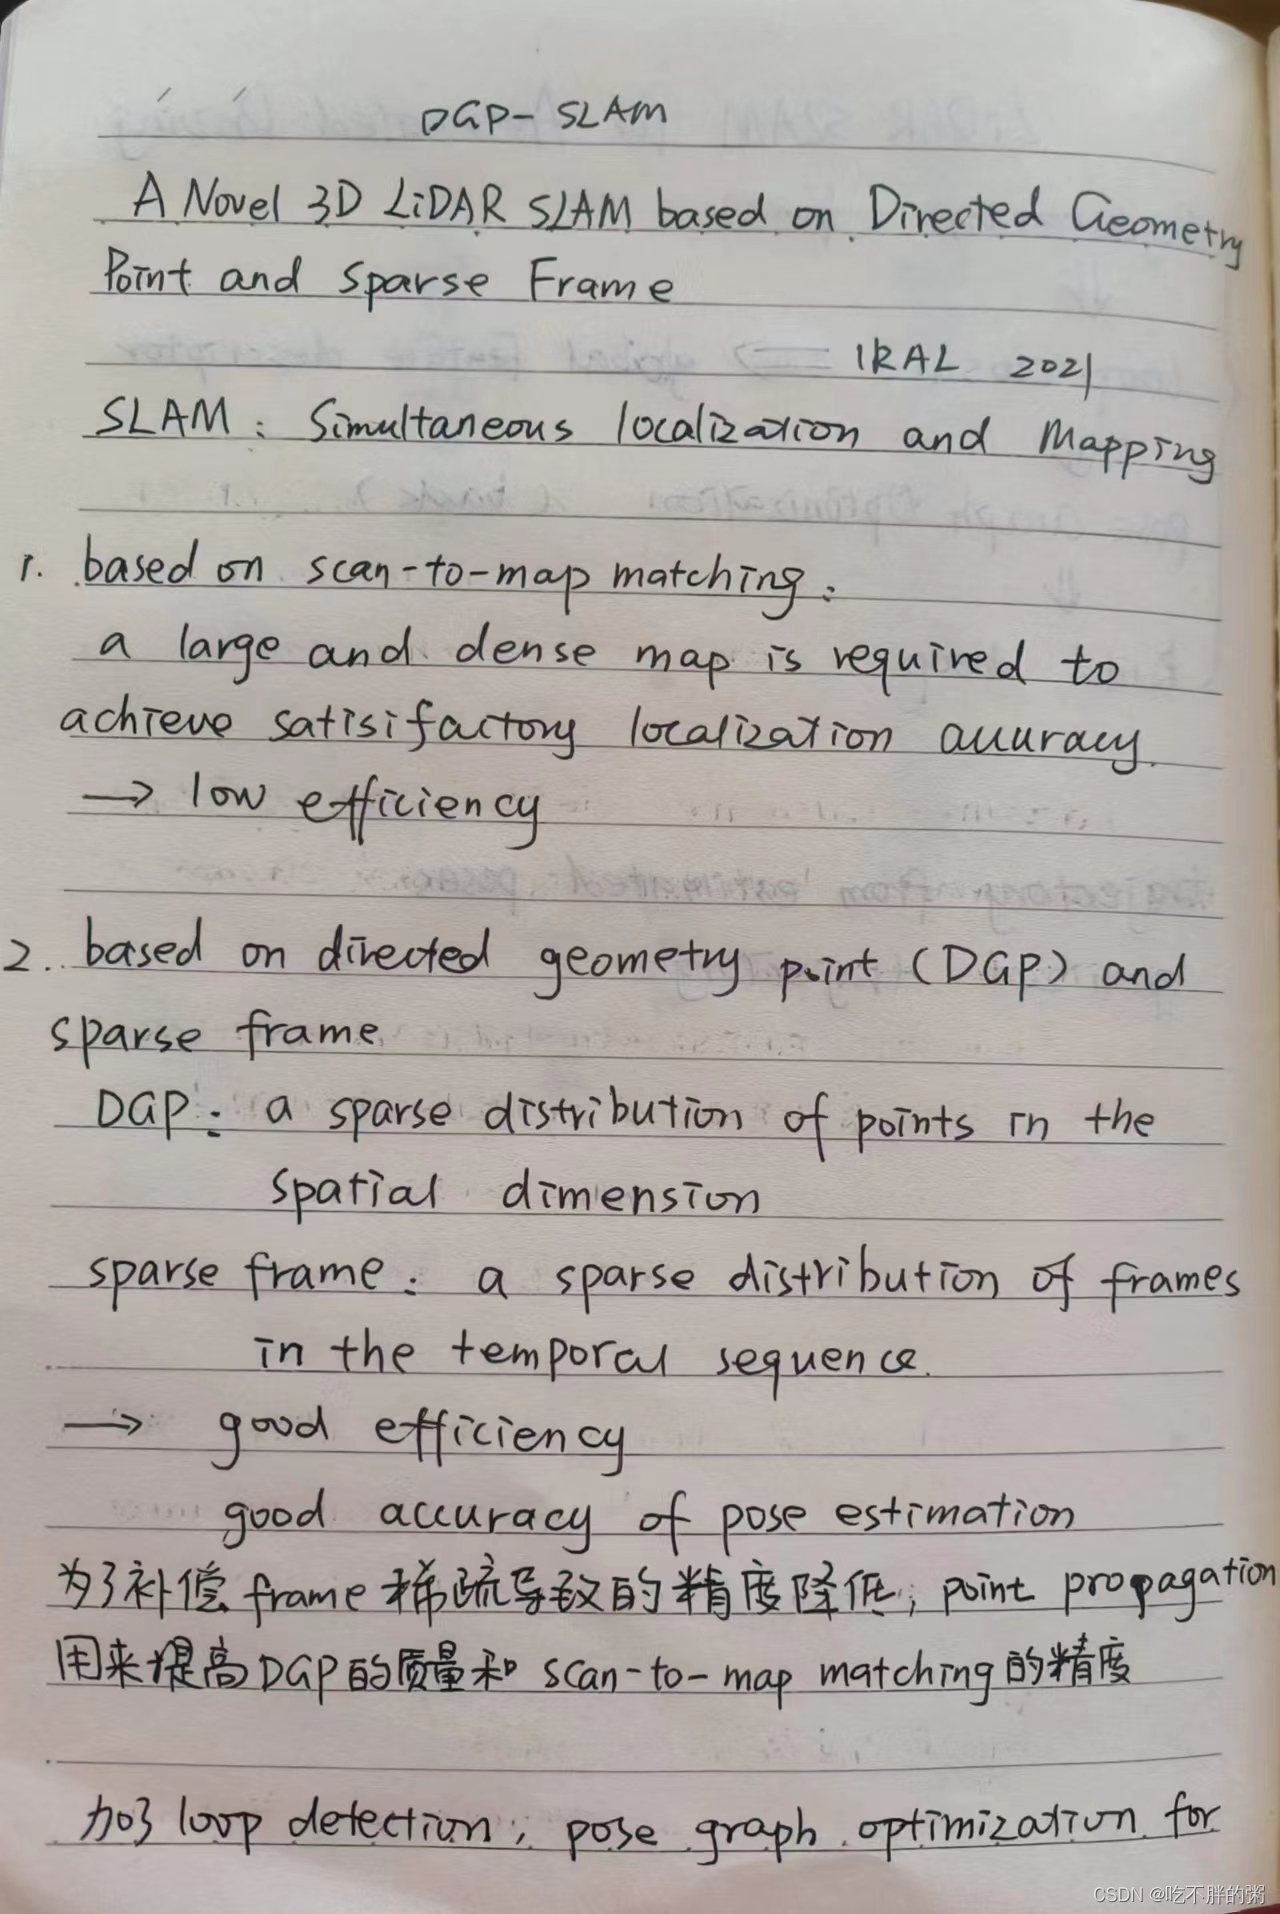 DGP- SLAM
A Novel 3D LiDAR SLAM based on Directed Geometry
Point and Sparse Frame
== IRAL 2021
SLAM: Simultaneous localization and Mapping
1. based on scan-to-map matching:
a large and dense map is required to
achieve satisifactory localization accuracy.
→ low efficiency
2. based on directed geometry point (DGP) and
sparse frame.
DGP: a sparse distribution of points in the
spatial dimension
sparse frame: a sparse distribution of frames
in the temporal sequence.
→ good efficiency
good accuracy of pose estimation
为了补偿 frame 稀疏导致的精度降低, point propagation
用来提高DGP的质量和 scan-to-map matching的精度
加了 loop detection, pose graph optimization for
CSDN @吃不胖的粥